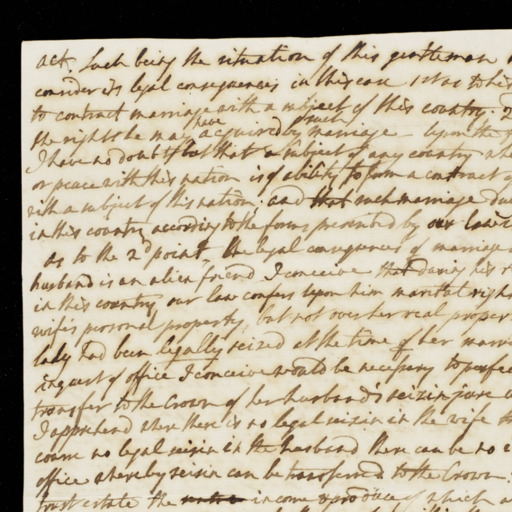 act. Such being the situation of this gentleman
consider its legal consequences in this case 1st as to his
to contract marriage with a subject of this country. 2
the rights he may have acquired by such marriage - Upon the
I have no doubt but that a subject of any country
or peace with this nation is of ability to form a contract of
with a subject of this nation; and that such marriage
in this country according to the forms prescribed by our laws
as to the 2d point, the legal consequences of marriage
husband is an alien friend I conceive that during his
in this country our law confers upon him marital rights
wife's personal property, but not over her real property
lady had been legally seized at the time of her marriage
inquest of office I conceive would be necessary to perfect
transfer to the Crown of her husband's seizin jure
I apprehend where there is no legal seisin in the wife
course no legal seisin in the husband there can be no
office whereby seisin can be transferred to the Crown.
trust estate the income & produce of which